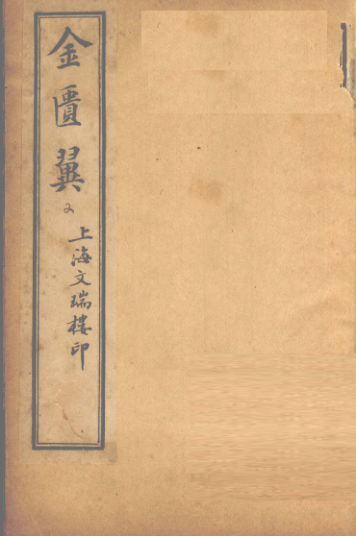 金匱翼
上海文瑞樓印